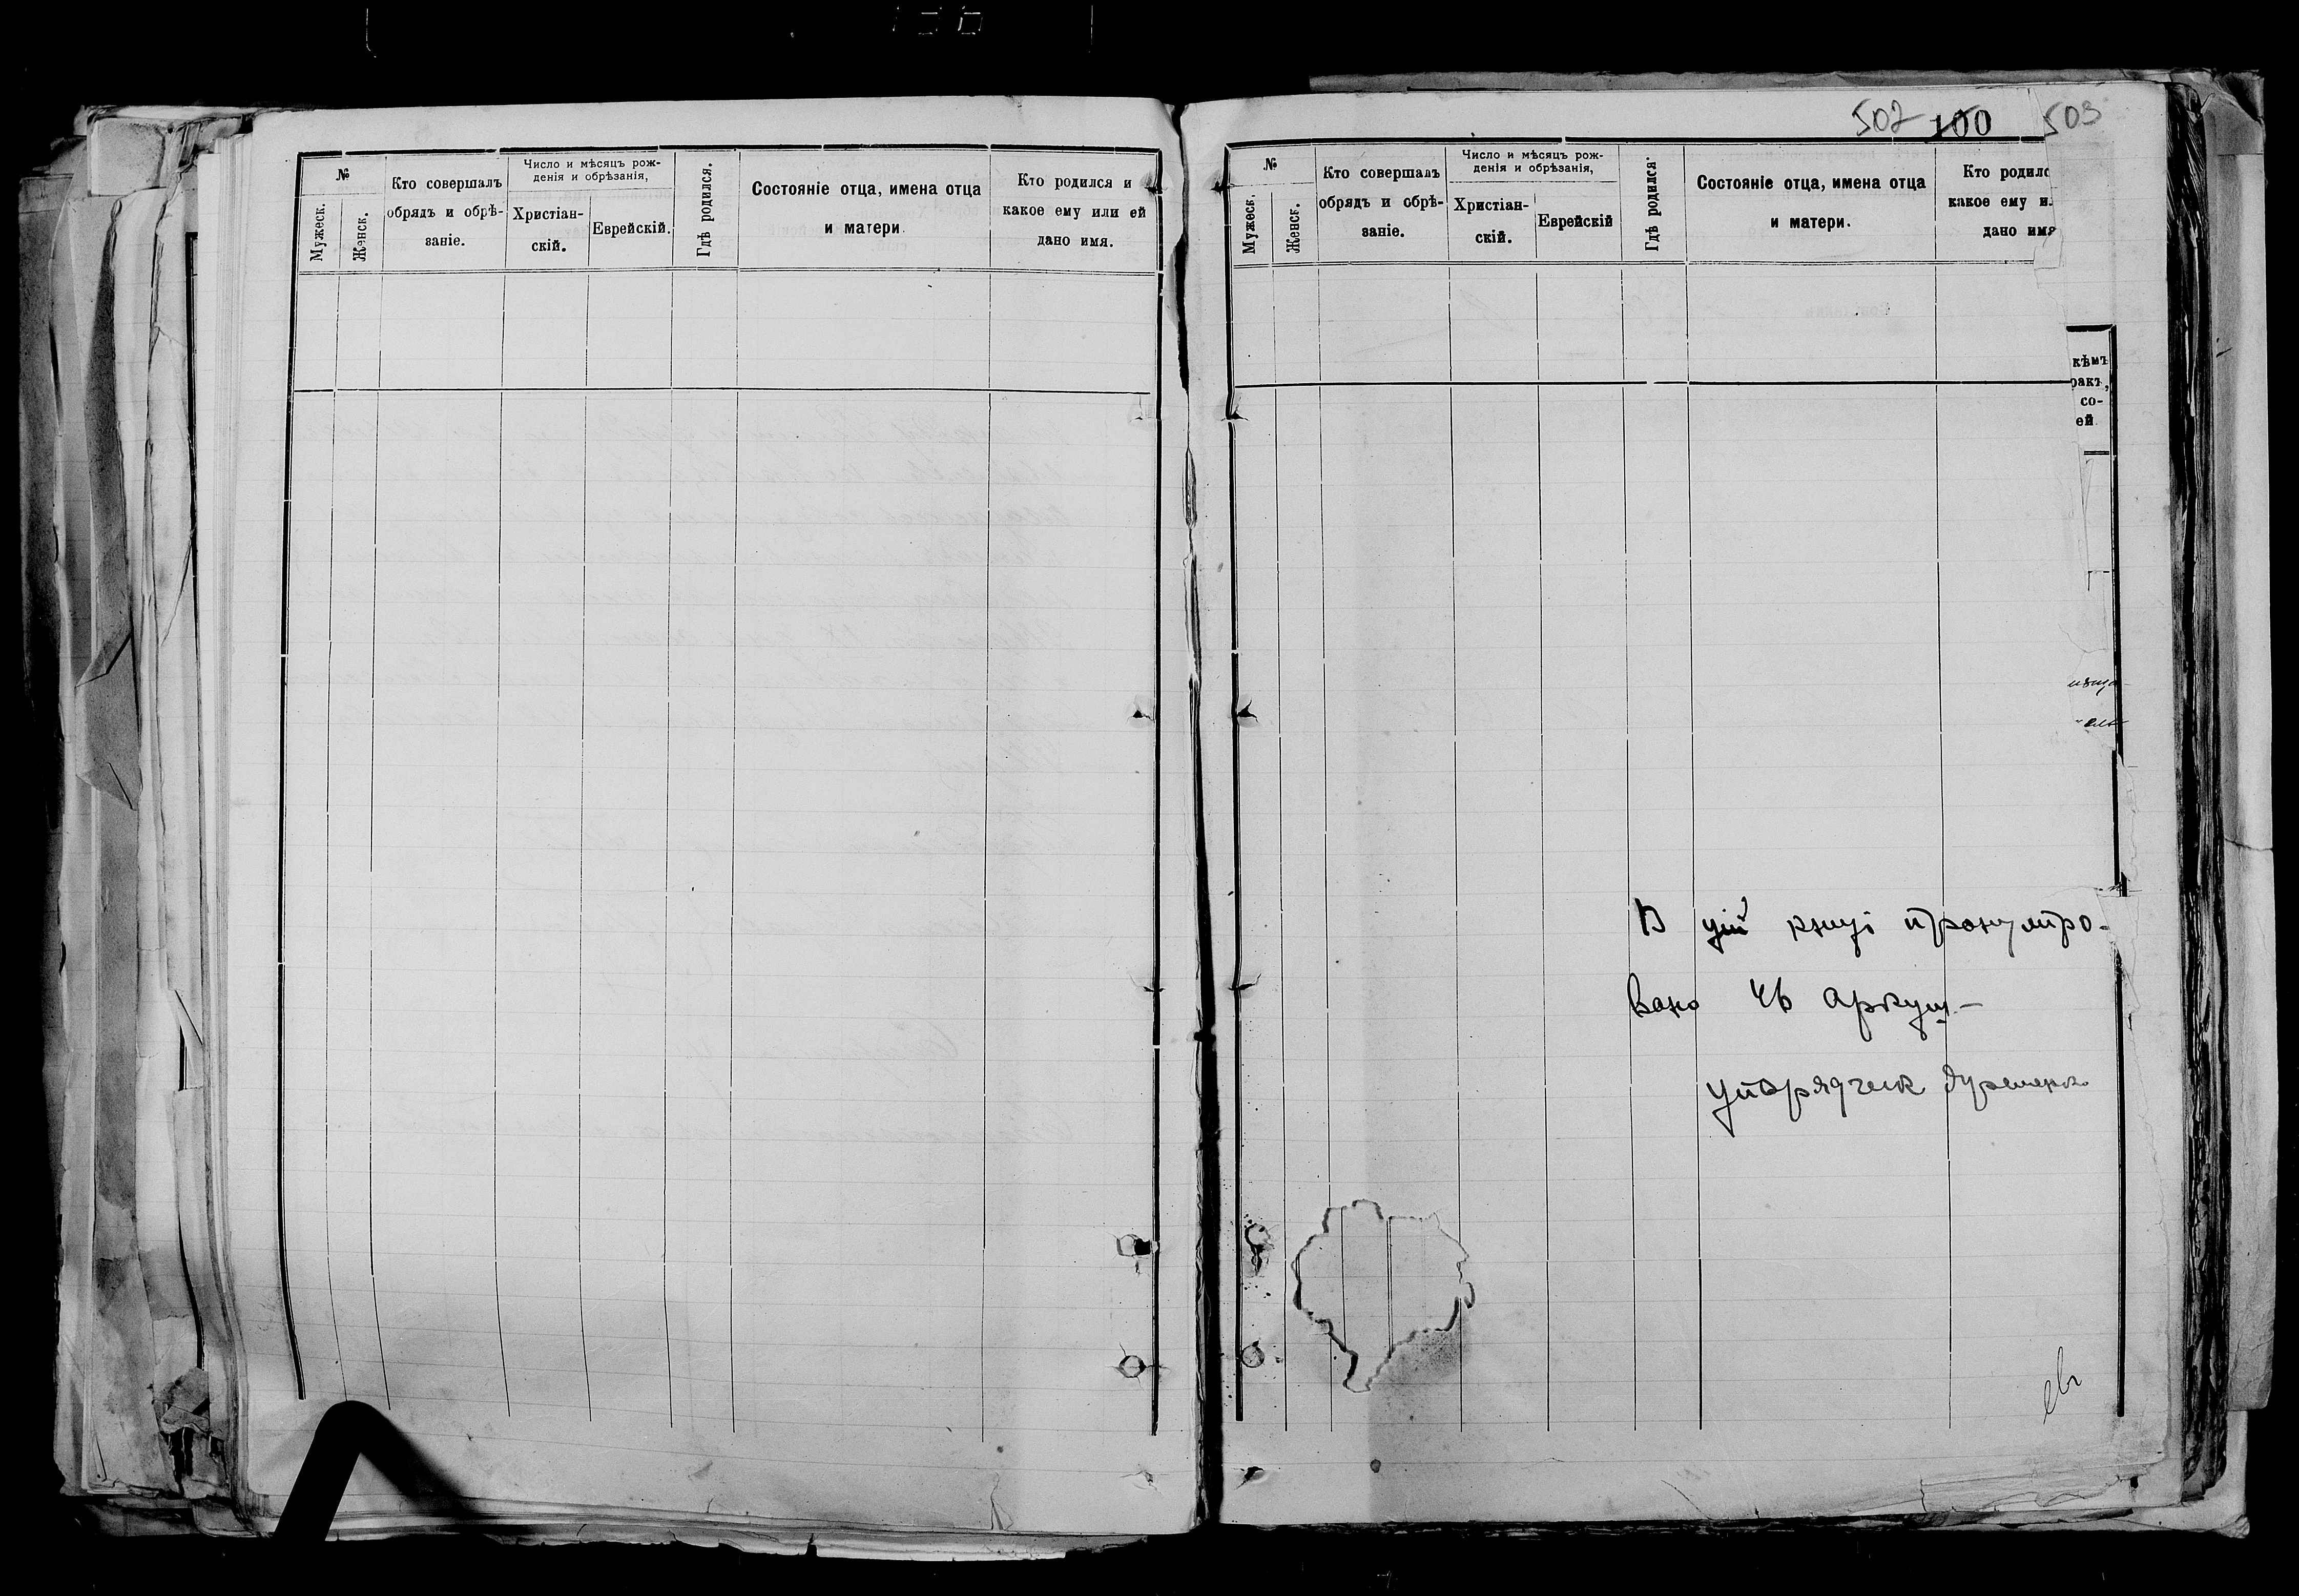 №
Мужеск.
Женск.
Кто совершалъ
обрядъ и обрѣ-
заніе.
Число и мѣсяцъ рож-
денія и обрѣзанія,
Христіан-
скій.
Еврейскій.
Гдѣ родился.
Состояніе отца, имена отца
и матери.
Кто родился и
какое ему или ей
дано имя.
502 100 503
№
Мужеск.
Женск.
Кто совершалъ
обрядъ и обрѣ-
заніе.
Число и мѣсяцъ рож-
денія и обрѣзанія,
Христіан-
скій.
Еврейскій
Гдѣ родился.
Состояніе отца, имена отца
и матери.
Кто родилс
какое ему и
дано имя
кѣмъ
ракъ,
со-
ей
В цій книзі пронуміро-
вано аркуш
упорядчик